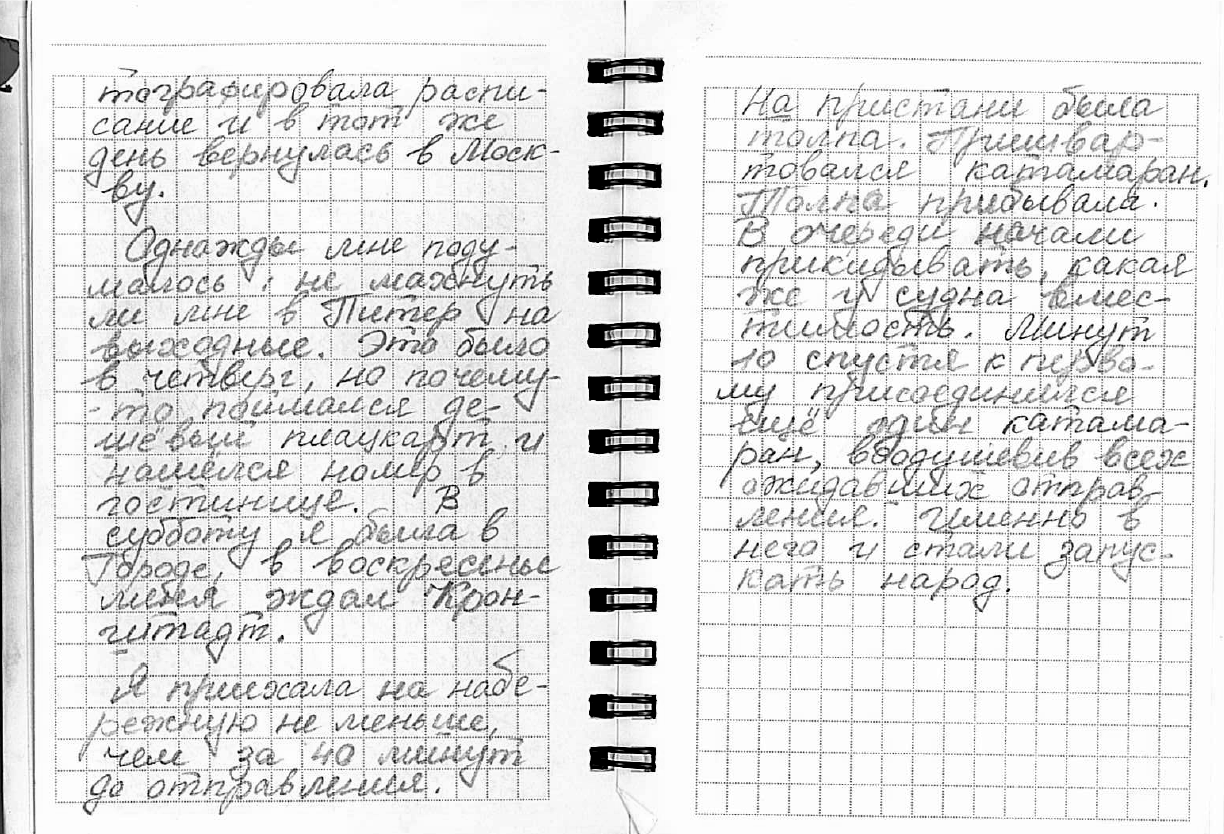 тографировала распи-
сание и в тот же
день вернулась в Моск-
ву.
Однажды мне поду-
малось: не махнуть
ли мне в Питер на
выходные. Это было
в четверг, но почему-
-то поймался де-
шёвый плацкарт и
нашёлся номер в
гостинице. В
субботу я была в
Городе, в воскресенье
меня ждал Крон-
штадт.
Я приехала на набе-
режную не меньше,
чем за 40 минут
до отправления.
На пристани была
толпа. Пришвар-
товался катамаран.
Толпа прибывала.
В очереди начали
прикидывать, какая
же у судна вмес-
тимость. Минут
10 спустя к перво-
му присоединился
ещё один катама-
ран, воодушевив всех
ожидавших отправ-
ления. Именно в
него и стали запус-
кать народ.